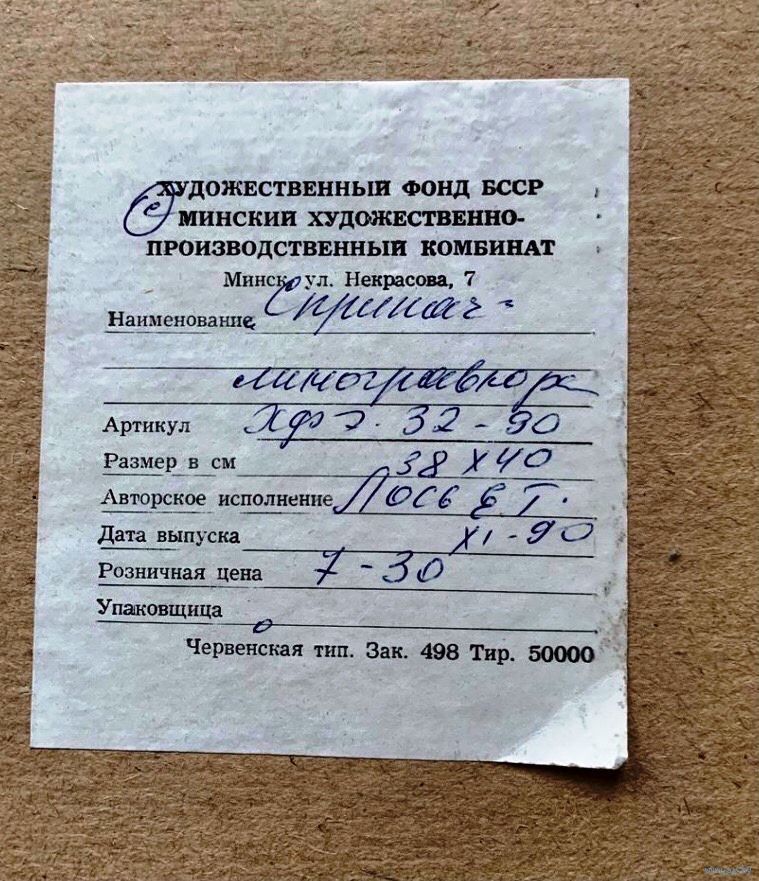 ХУДОЖЕСТВЕННЫЙ ФОНД БССР
с МИНСКИЙ ХУДОЖЕСТВЕННО-
ПРОИЗВОДСТВЕННЫЙ КОМБИНАТ
Минск, ул. Некрасова, 7
Наименование
линогравюра
Артикул ХФЭ. 32-90
Размер в см 38 х 40
Авторское исполнение Лось Е Г.
Дата выпуска XI-90
Розничная цена 7-30
Упаковщица
Червенская тип. Зак. 498 Тир. 50000